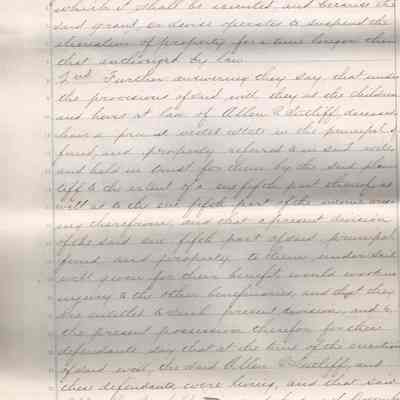 which it shall be executed, and because the
said grant, or devise operates to suspend the
alienation of property for a time longer than
that authorized by law.
2nd. Further answering they say, that under
the provisions of said will they as the children
and heirs at law of Allen Sutcliff, deceased,
have a present vested estate in the principal
fund, and property referred to in said will
and held in trust for them by the said plain
tiff to the extent of a one fifth part thereof, as
well as to the one fifth part of the income aris
ing therefrom, and that a present division
of the said one fifth part of said principal
fund and property to them under said
will given for their benefit would work no
injury to the other beneficiaries, and that they
are entitled to such present division, and to
the present possession thereof for these
defendants say that at the time of the execution
of said will, the said Allen Sutcliff, and
these defendants were living, and that said